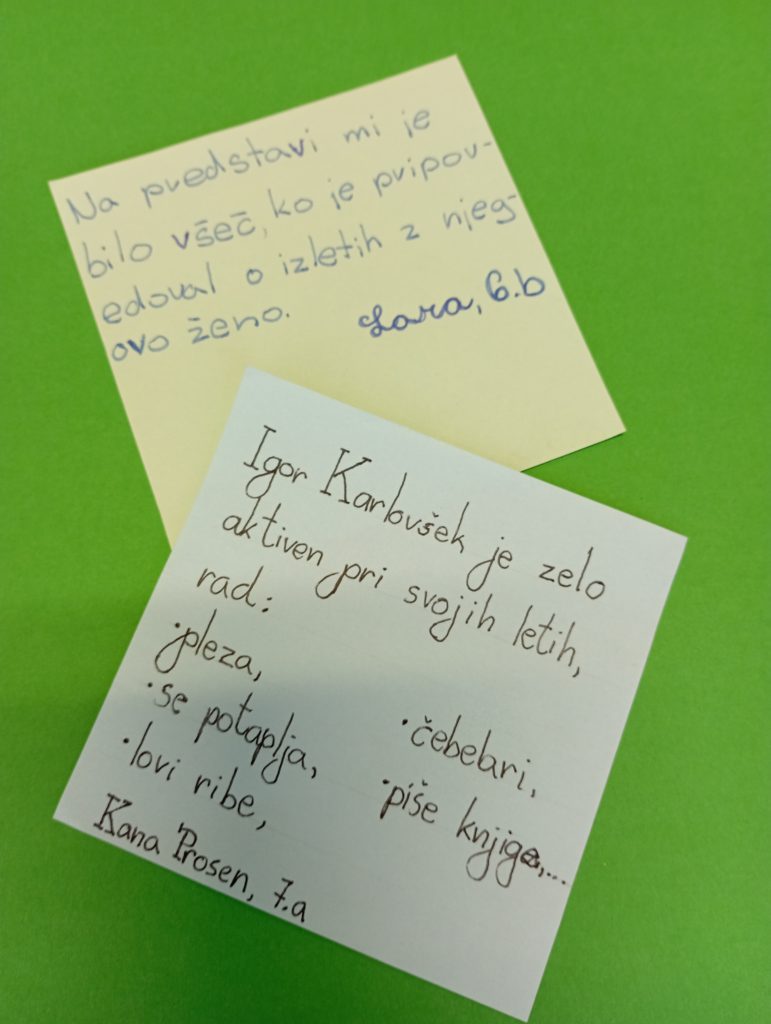 Na predstavi mi je
bilo všeč, ko je pripov-
edoval o izletih z njeg-
ovo ženo.
Lara, 6.b
Igor Karlovšek je zelo
aktiven pri svojih letih,
rad:
•pleza,
•se potaplja,
•lovi ribe,
•čebelari,
•piše knjige,...
Kana Prosen, 7.a